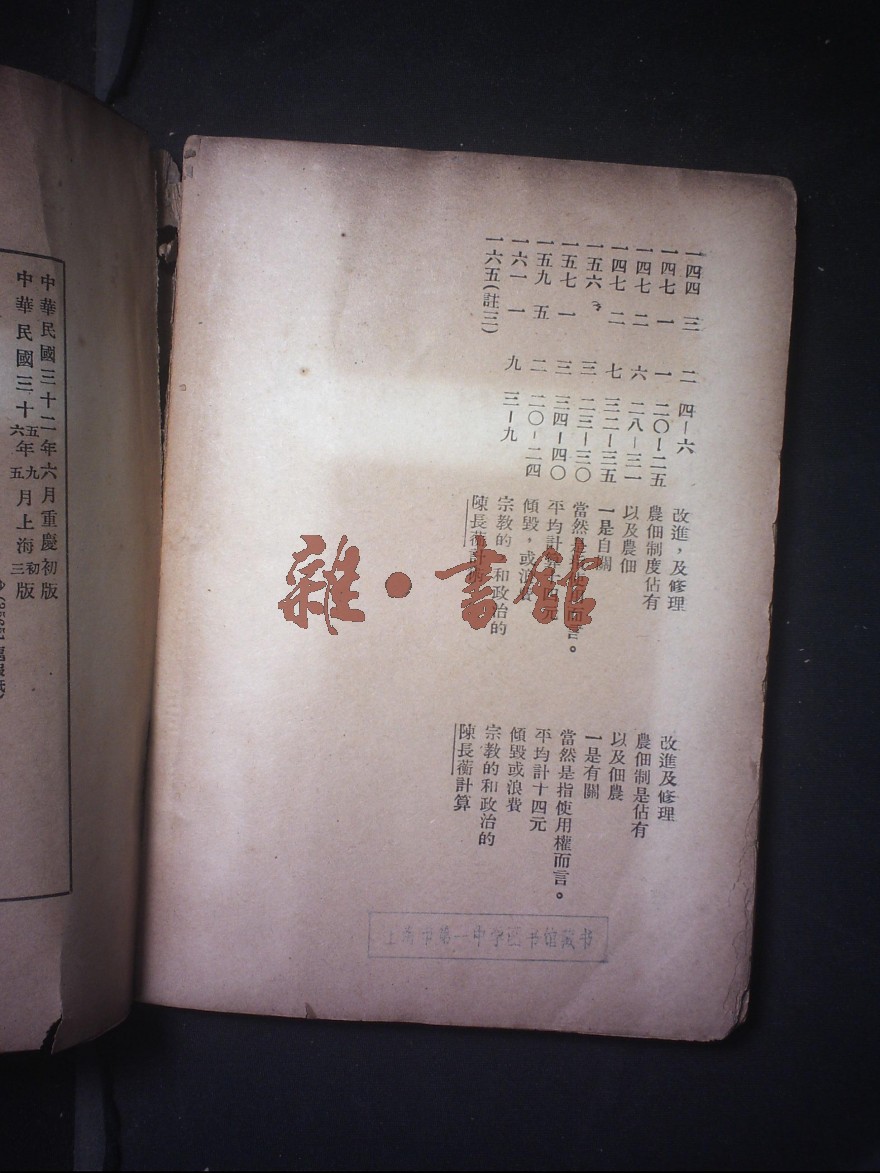 一四四 三 二 四—六 改進，及修理 改進及修理
一四七 一 一 二〇—二五 農佃制度佔有 農佃制是佔有
一四七 二 六 二八—三一 以及農佃 以及佃農
一四七 二 七 三二—三五 一是自關 一是有關
一五六 三 二三—三〇 當然是 而言。 當然是指使用權而言。
一五七 一 三 三四—四〇 平均計 十四元 平均計十四元
一五九 五 二 二〇—二四 傾毀，或浪費 傾毀或浪費
一六一 一 九 三—九 宗教的 和政治的 宗教的和政治的
一六五（註三） 陳長蘅計 陳長蘅計算
雜·書館
上海市第一中学图书馆藏书
中華民國三十二年六月重慶初版
中華民國三十五年九月上海初版
六 五 三